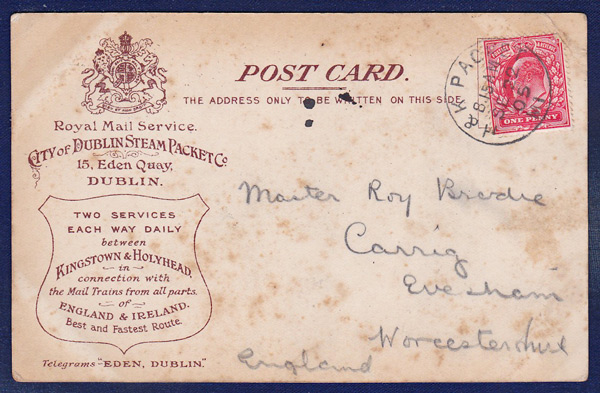 POST CARD.
THE ADDRESS ONLY TO BE WRITTEN ON THIS SIDE
Royal Mail Service.
CITY OF DUBLIN STEAM PACKET Co
15, Eden Quay,
DUBLIN.
TWO SERVICES
EACH WAY DAILY
between
KINGSTOWN & HOLYHEAD.
in
connection with
the Mail Trains from all parts.
of
ENGLAND & IRELAND.
Best and Fastest Route.
Telegrams "EDEN, DUBLIN."
ONE PENNY
H & K PACKET
Master Roy Brodie
Carrig
Evesham
Worcestershire
England